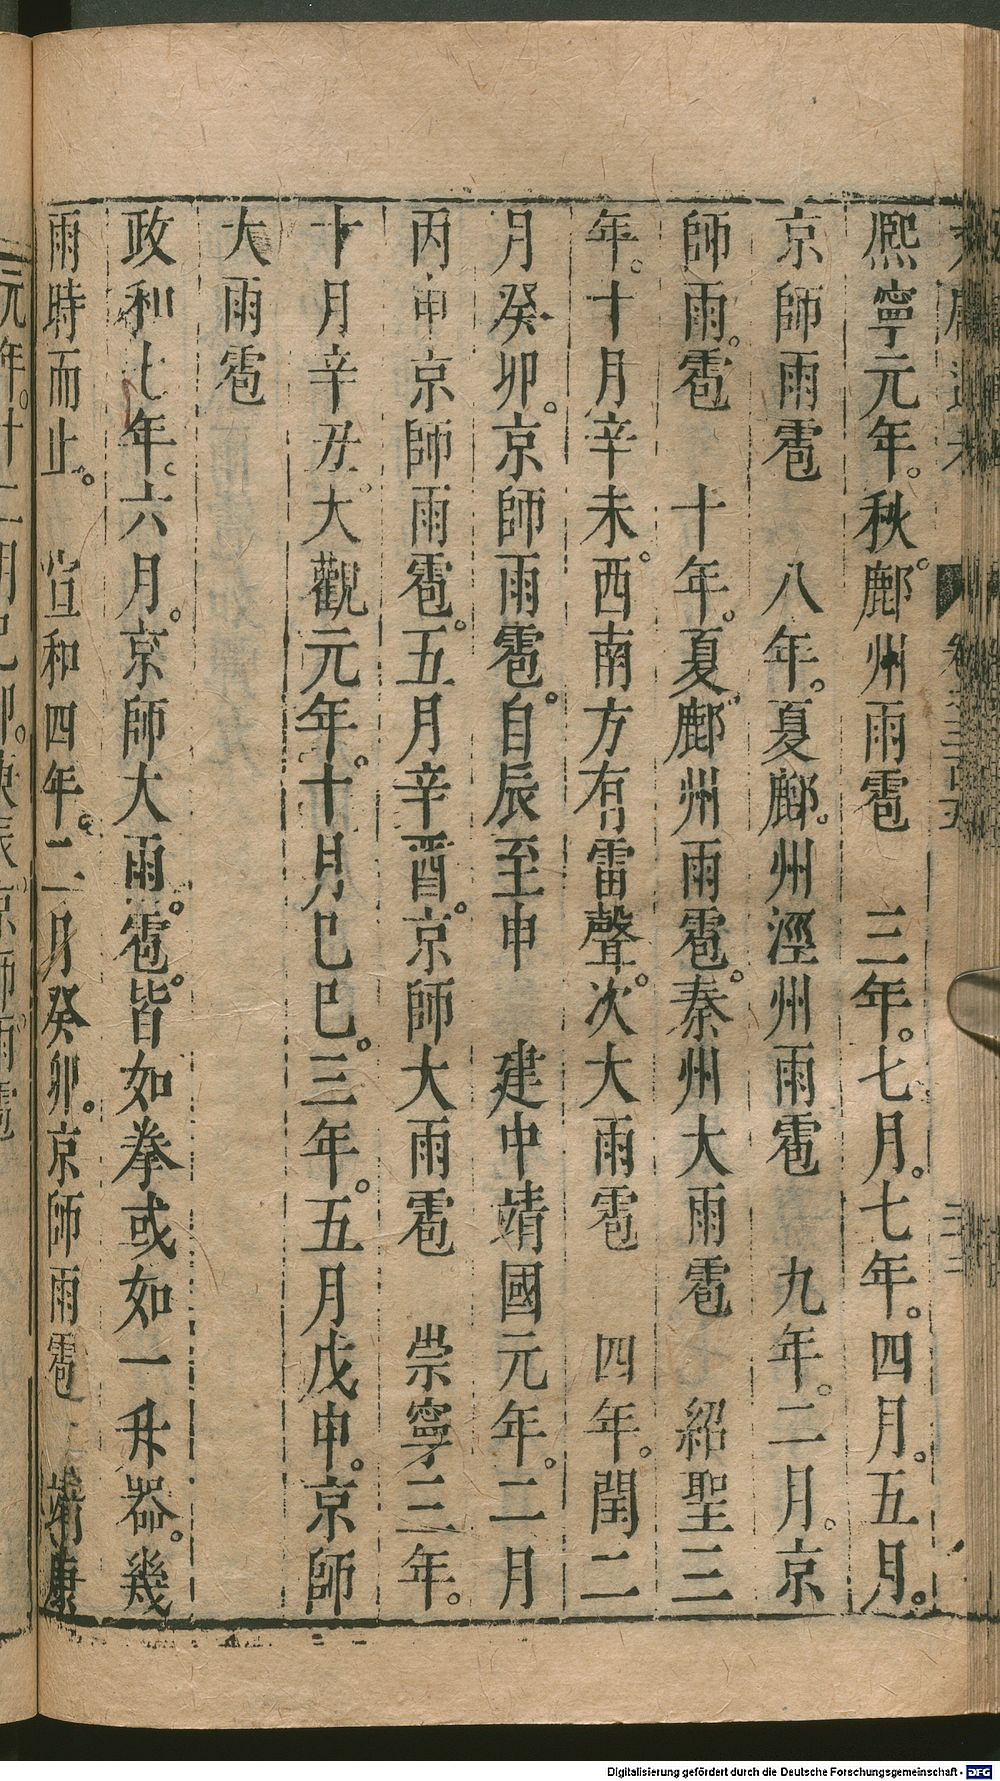 熈寧元年。秋。鄜州雨雹　三年。七月。七年。四月。五月。
京師雨雹　八年。夏鄜。州涇州雨雹　九年。二月。京
師雨。雹　十年。夏。鄜州雨雹。秦州大雨雹　紹聖三
年。十月辛未。西南方有雷聲。次大雨雹　四年。閏二
月癸卯。京師雨雹。自辰至申　建中靖國元年。二月
丙申京師雨雹。五月辛酉。京師大雨雹　崇寧三年。
十月辛丑。大觀元年。十月已巳。三年。五月戊申。京師
大雨雹
政和七年。六月。京師大雨。雹。皆如拳或如一升器。幾
雨時而止。　宣和四年。二月癸卯。京師雨雹　靖康
Digitalisierung gefördert durch die Deutsche Forschungsgemeinschaft - DFG